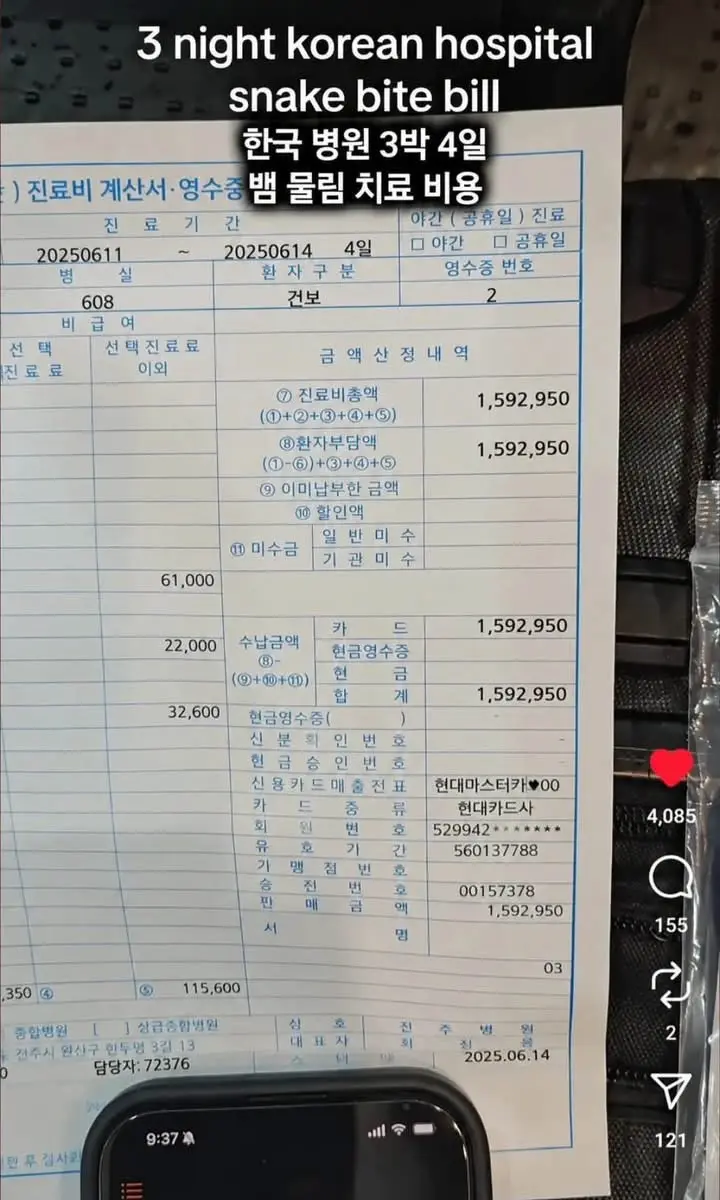 3 night korean hospital
snake bite bill
한국 병원 3박 4일
뱀 물림 치료 비용
) 진료비 계산서·영수증
진 료 기 간
야간 ( 공휴일 ) 진료
20250611 ~ 20250614 4일
□ 야간 □ 공휴일
병 실
환 자 구 분
영수증 번호
608
건보
2
비 급 여
선 택
진 료 료
선 택 진 료 료
이외
금 액 산 정 내 역
⑦ 진료비총액
(①+②+③+④+⑤)
1,592,950
⑧환자부담액
(①-⑥)+③+④+⑤
1,592,950
⑨ 이미납부한 금액
⑩ 할인액
⑪ 미수금
일 반 미 수
기 관 미 수
61,000
22,000
32,600
수납금액
⑧-
(⑨+⑩+⑪)
카 드
1,592,950
현금영수증
현 금
합 계
1,592,950
현금영수증( )
-
신 분 확 인 번 호
-
현 금 승 인 번 호
-
신 용 카 드 매 출 전 표
현대마스터카♥00
카 드 종 류
현대카드사
회 원 번 호
529942*******
유 효 기 간
560137788
가 맹 점 번 호
승 전 번 호
00157378
판 매 금 액
1,592,950
서 명
03
,350 ④
⑤ 115,600
종합병원 [ ] 상급종합병원
상 호
전 주 병 원
전주시 완산구 한두평 3길 13
대 표 자
0
담당자: 72376
2025.06.14
9:37
4,085
155
2
121